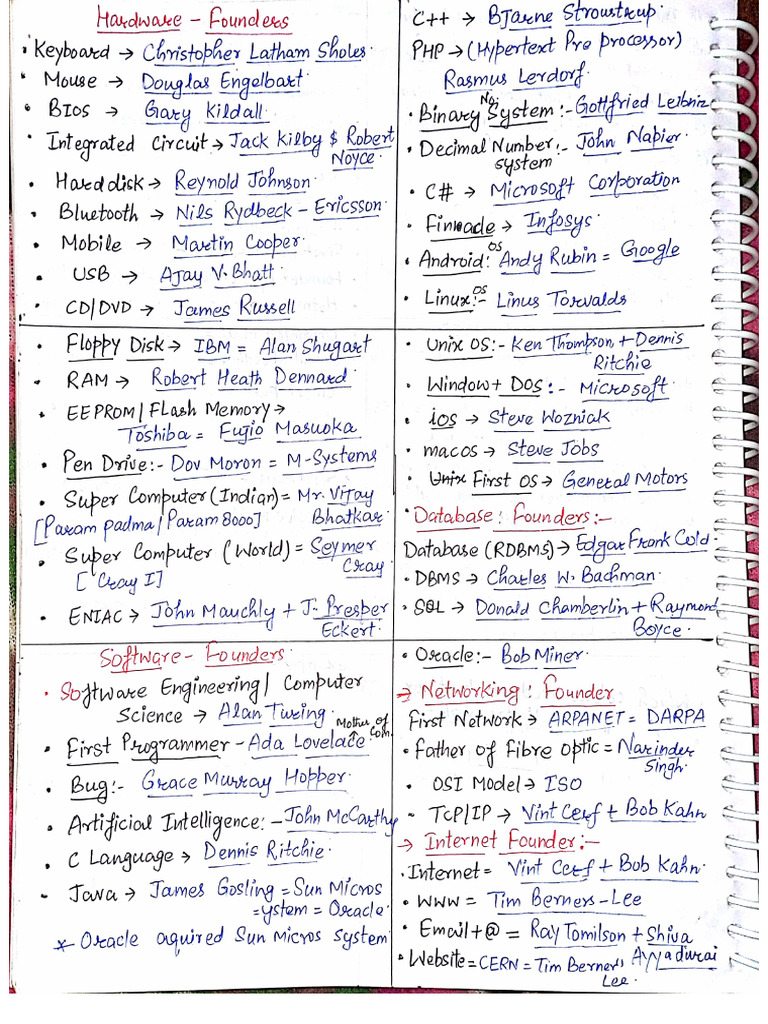 Hardware - Founders
• Keyboard → Christopher Latham Sholes.
• Mouse → Douglas Engelbart
• BIOS → Gary Kildall.
• Integrated Circuit → Jack Kilby $ Robert
Noyce
• Hard disk → Reynold Johnson
• Bluetooth → Nils Rydbeck - Ericsson
• Mobile → Martin Cooper
• USB → Ajay V. Bhatt
• CD/DVD → James Russell
• Floppy Disk → IBM = Alan Shugart
• RAM → Robert Heath Dennard
• EEPROM/Flash Memory →
Toshiba = Fujio Masuoka
• Pen Drive:- Dov Moron = M-Systems
• Super Computer (Indian) = Mr. Vijay
[Param padma/Param 8000] Bhatkar
• Super Computer (World) = Seymer
[Cray I] Cray
• ENIAC → John Mauchly + J. Presper
Eckert.
Software - Founders
• Software Engineering/ Computer
Science → Alan Turing
• First Programmer - Ada Lovelace Mother of Com.
• Bug:- Grace Murray Hopper.
• Artificial Intelligence:- John McCarthy
• C Language → Dennis Ritchie.
- Java → James Gosling = Sun Micros
=ystem = Oracle
* Oracle aquired Sun Micros system
C++ → Bjarne Stroustrup.
PHP → (Hypertext Pre processor)
Rasmus Lerdorf.
• Binary No. System:- Gottfried Leibniz
• Decimal Number:- John Napier
system
• C# → Microsoft Corporation
• Finnacle → Infosys
• Android OS: Andy Rubin = Google
• Linux OS:- Linus Torvalds
• Unix OS:- Ken Thompson + Dennis
Ritchie
• Window + DOS:- Microsoft
• ios → Steve Wozniak
• macos → Steve Jobs
• Unix First OS → General Motors
• Database: Founders:-
Database (RDBMS) → Edgar Frank Codd
• DBMS → Charles W. Bachman.
• SQL → Donald Chamberlin + Raymond
Boyce
• Oracle:- Bob Miner
→ Networking: Founder
First Network → ARPANET = DARPA
• Father of Fibre optic = Narinder
Singh.
• OSI Model → ISO
• TCP/IP → Vint Cerf + Bob Kahn
→ Internet Founder:-
• Internet = Vint Cerf + Bob Kahn
• WWW = Tim Berners-Lee
• Email + @ = Ray Tomilson + Shiva
Ayyadurai
• Website = CERN = Tim Berners
Lee